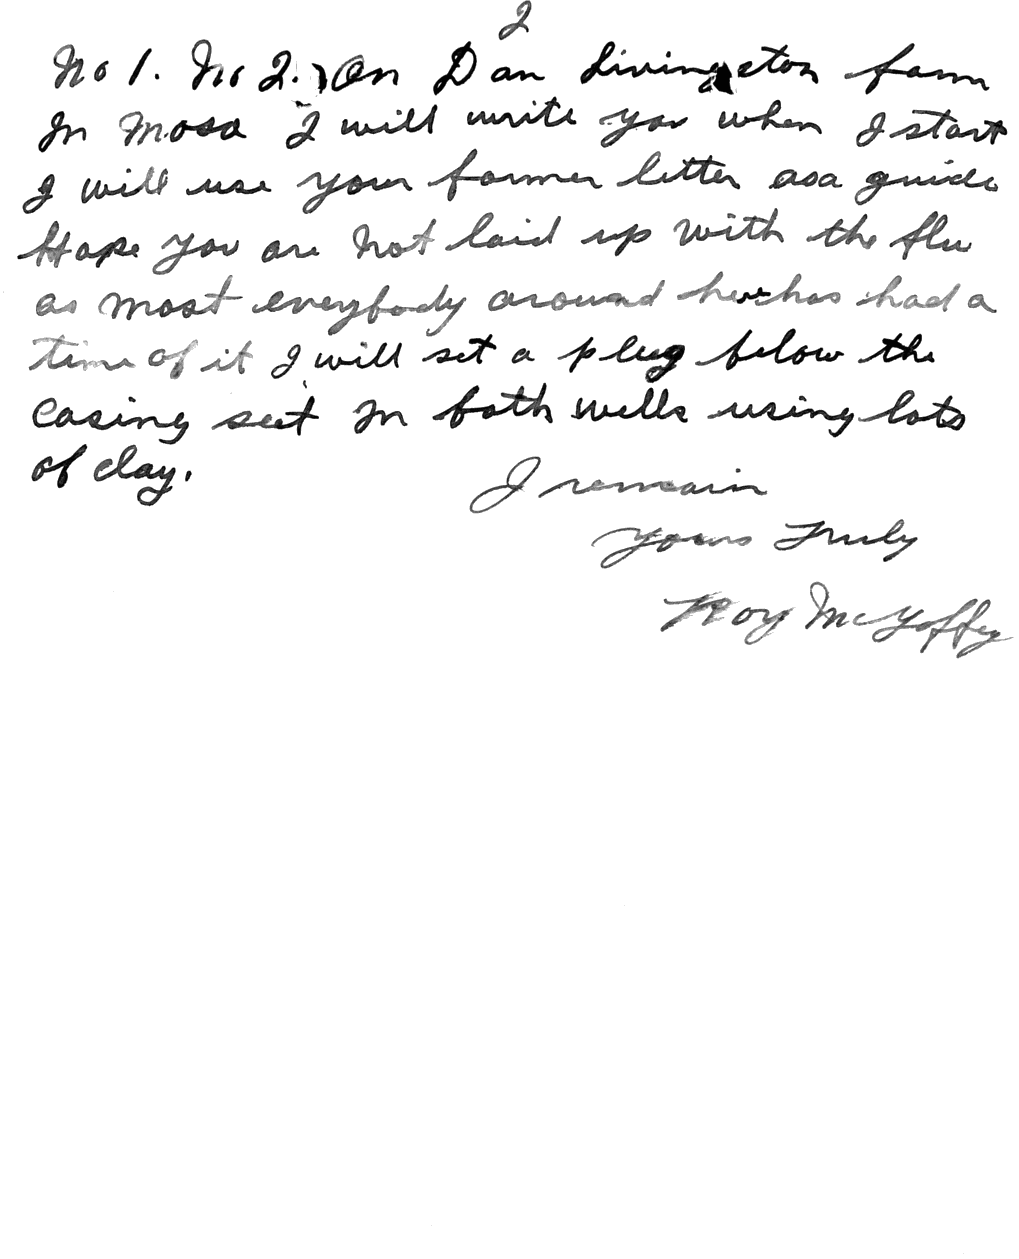 2
No 1. No 2. On Dan Livingston farm
In Mosa I will write you when I start
I will use your former letter as a guide
Hope you are not laid up with the flu
as most everybody around here has had a
time of it I will set a plug below the
Casing seat In both wells using lots
of clay.
I remain
Yours Truly
Roy